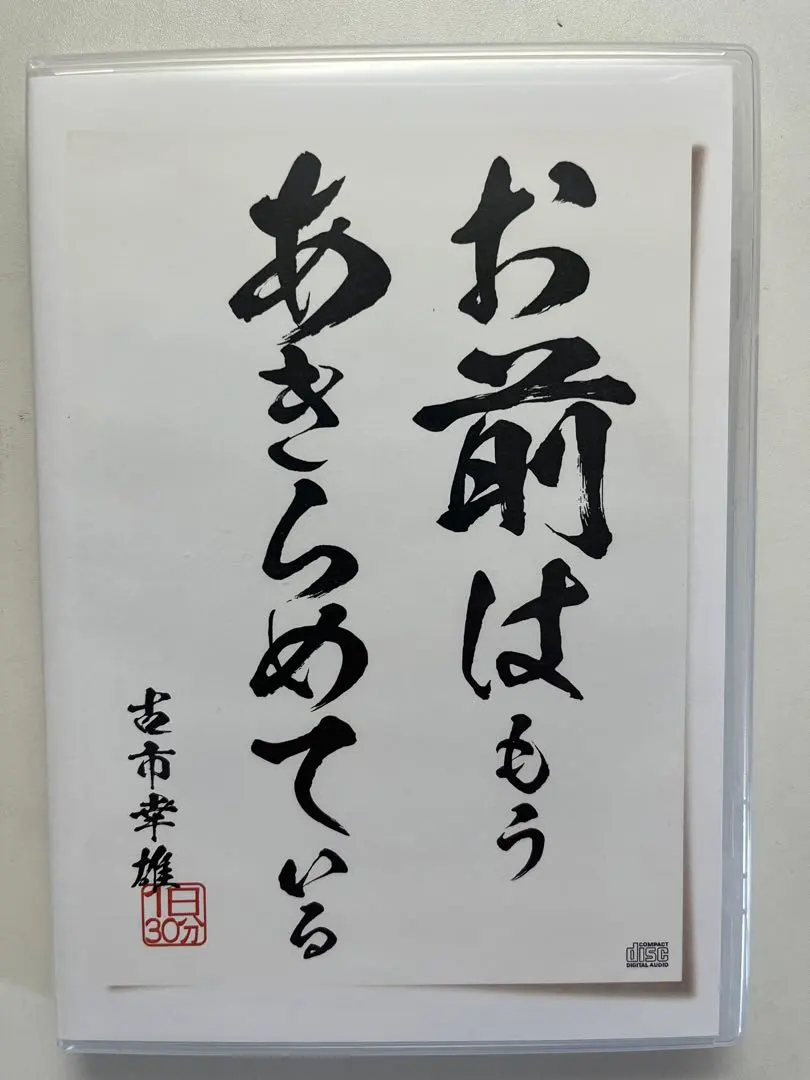 お前はもう
あきらめている
古市幸雄
1日
30分
COMPACT
disc
DIGITAL AUDIO